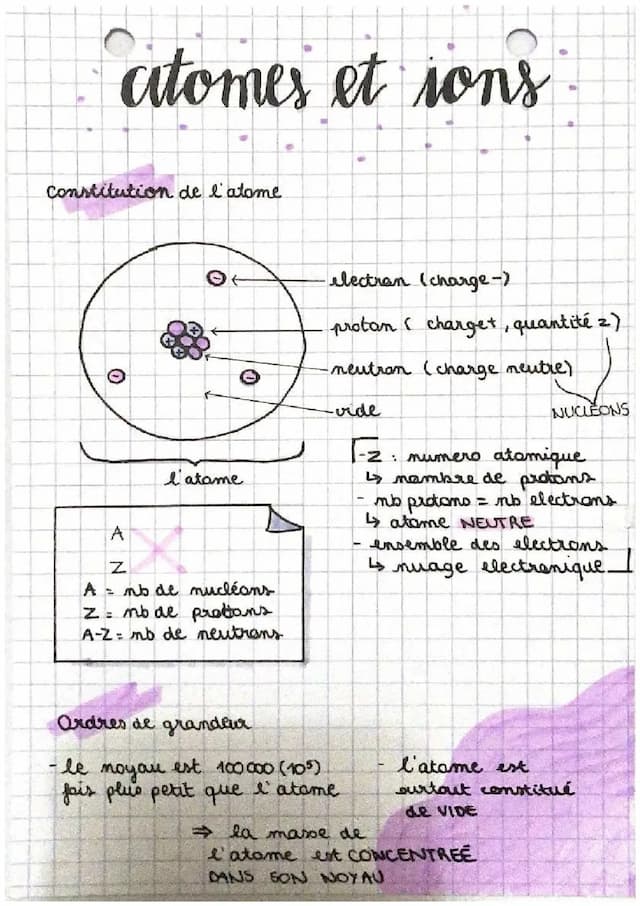 atomes et ions
constitution de l'atome
électron (charge-)
proton ( charge+, quantité z)
neutron (charge neutre)
vide
NUCLÉONS
l'atome
-Z : numero atomique
↳ nombre de protons
- nb protons = nb electrons
↳ atome NEUTRE
- ensemble des electrons
↳ nuage electronique
A
X
Z
A = nb de nucléons
Z = nb de protons
A-Z = nb de neutrons
Ordres de grandeur
- le noyau est 100 000 (10⁵)
fois plus petit que l'atome
- l'atome est
surtout constitué
de VIDE
⇒ la masse de
l'atome est CONCENTREÉ
DANS SON NOYAU